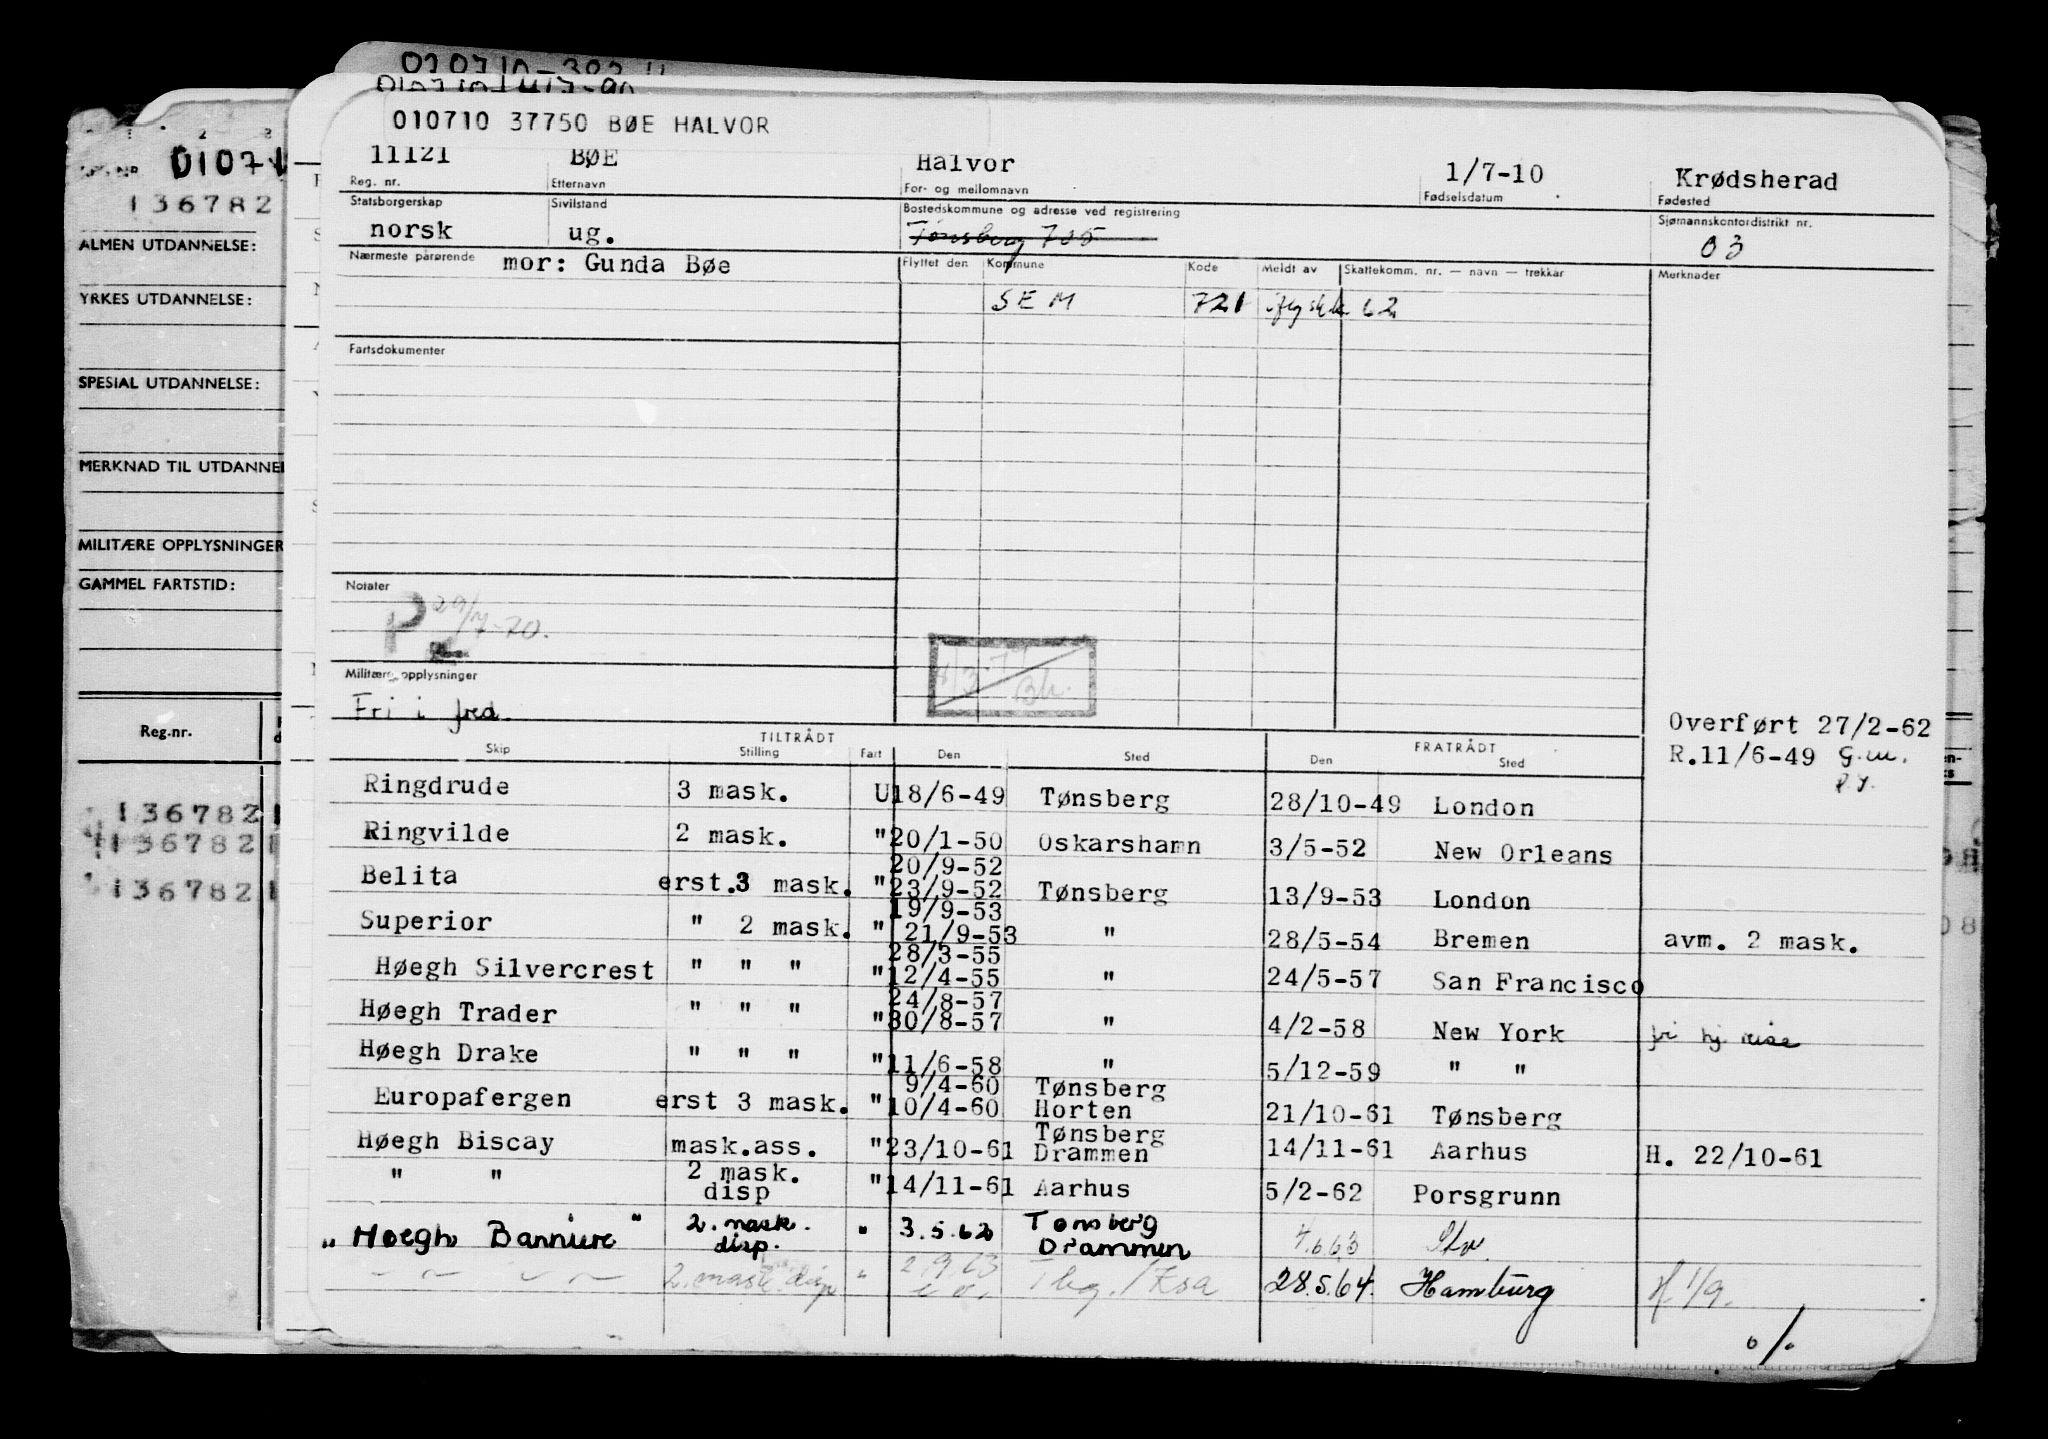 010710 37750 BØE HALVOR
11121 BØE Halvor 1/7-10 Krødsherad
Reg. nr. Etternavn For- og mellomnavn Fødselsdatum Fødested
Statsborgerskap Sivilstand Bostedskommune og adresse ved registrering Sjømannskontordistrikt nr.
norsk ug. Tønsberg 705 03
Nærmeste pårørende mor: Gunda Bøe Flyttet den Kommune Kode Meldt av Skattekomm. nr. — navn — trekkår Merknader
SEM 721 62
Fartsdokumenter
Notater
P 29/7-70.
Militære opplysninger
Fri i fred.
Overført 27/2-62
R.11/6-49 G.M.
TILTRÅDT FRATRÅDT
Skip Stilling Fart Den Sted Den Sted
Ringdrude 3 mask. U 18/6-49 Tønsberg 28/10-49 London
Ringvilde 2 mask. " 20/1-50 Oskarshamn 3/5-52 New Orleans
20/9-52
Belita erst.3 mask. " 23/9-52 Tønsberg 13/9-53 London
19/9-53
Superior " 2 mask. " 21/9-53 " 28/5-54 Bremen avm. 2 mask.
28/3-55
Høegh Silvercrest " " " " 12/4-55 " 24/5-57 San Francisco
24/8-57
Høegh Trader " " " " 30/8-57 " 4/2-58 New York fri hj reise
Høegh Drake " " " " 11/6-58 " 5/12-59 " "
9/4-60 Tønsberg
Europafergen erst 3 mask. " 10/4-60 Horten 21/10-61 Tønsberg
Tønsberg
Høegh Biscay mask.ass. " 23/10-61 Drammen 14/11-61 Aarhus H. 22/10-61
" " 2 mask. disp " 14/11-61 Aarhus 5/2-62 Porsgrunn
„ Høegh Banniere " 2. mask. disp. " 3.5.62 Tønsberg Drammen 4.6.63
2. mask. disp " 2.9.63 Tbg. / 28.5.64. Hamburg H 1/9.
o/.
010710-
ALMEN UTDANNELSE:
136782
YRKES UTDANNELSE:
SPESIAL UTDANNELSE:
MERKNAD TIL UTDANNEL
MILITÆRE OPPLYSNINGER
GAMMEL FARTSTID:
Reg.nr.
136782
136782
136782